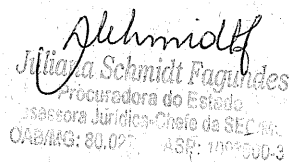 Juliana Schmidt Fagundes
Procuradora do Estado
Assessora Jurídica-Chefe da
OAB/MG: 80.02 ASP: